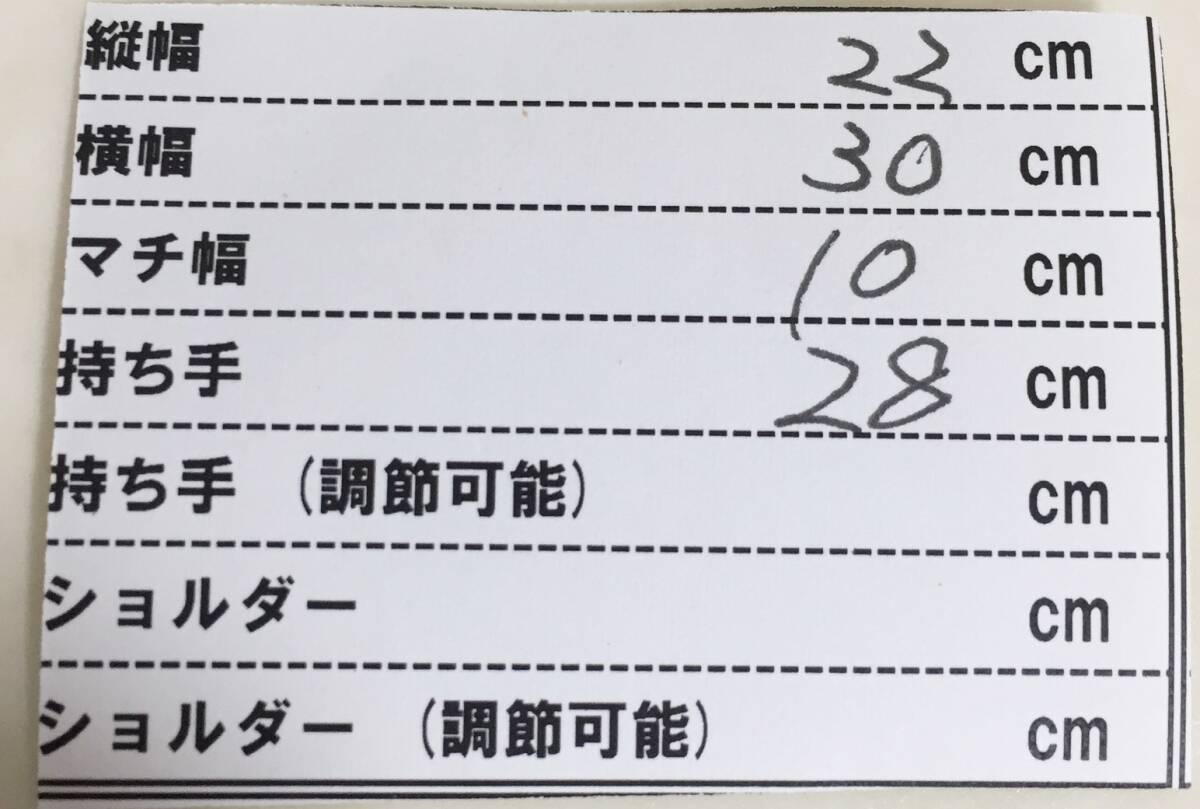 縦幅 22 cm
横幅 30 cm
マチ幅 10 cm
持ち手 28 cm
持ち手 (調節可能) cm
ショルダー cm
ショルダー (調節可能) cm